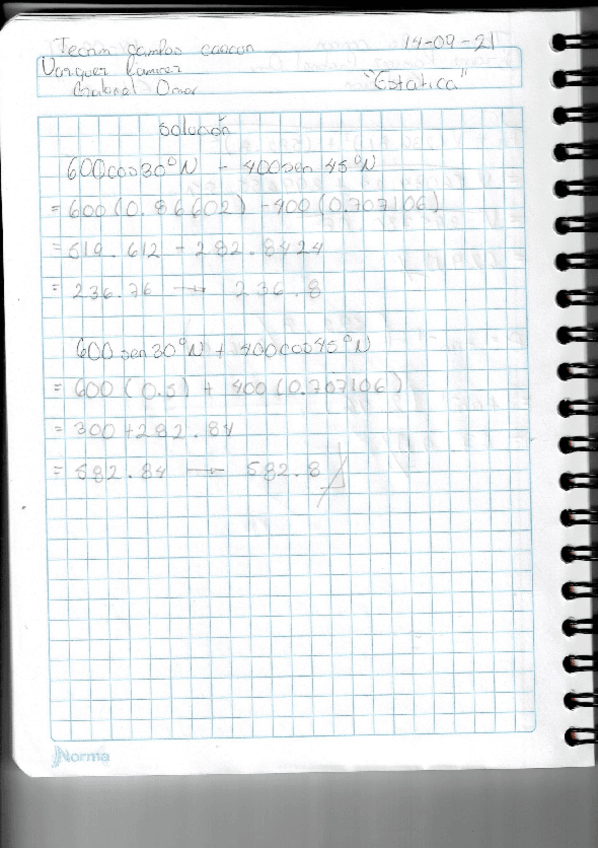 Tecnm campus cancun 14-09-21
Vazquez Ramirez
Gabriel Omar "Estatica"
solución
600cos30°N - 400sen 45°N
= 600 (0.86602) - 400 (0.707106)
= 519.612 - 282.8424
= 236.76 → 236.8
600sen30°N + 400cos45°N
= 600 (0.5) + 400 (0.707106)
= 300+282.84
= 582.84 → 582.8
Norma